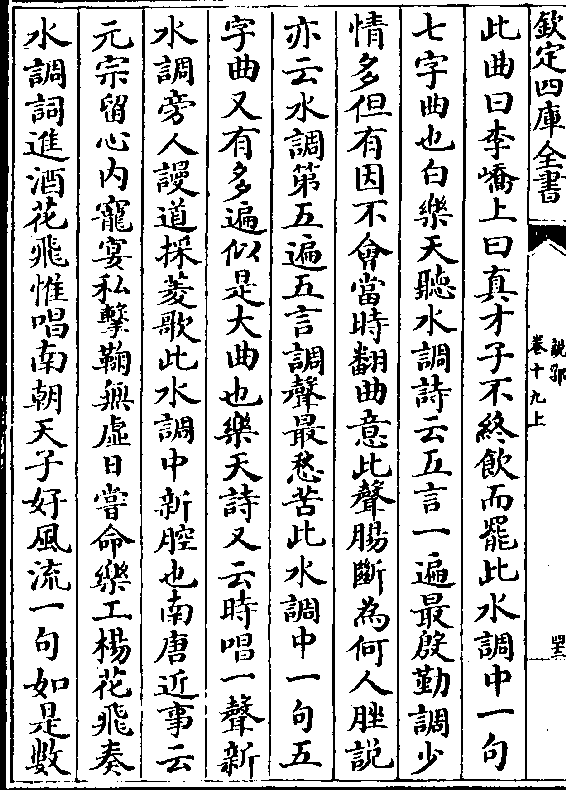 欽定四庫全書
說郛
卷十九上
此曲曰李嶠上曰真才子不終飲而罷此水調中一句
七字曲也白樂天聽水調詩云五言一遍最殷勤調少
情多但有因不會當時翻曲意此聲腸斷為何人脞說
亦云水調第五遍五言調聲最愁苦此水調中一句五
字曲又有多遍似是大曲也樂天詩又云時唱一聲新
水調旁人謾道採菱歌此水調中新腔也南唐近事云
元宗留心內寵宴私擊鞠無虛日嘗命樂工楊花飛奏
水調詞進酒花飛惟唱南朝天子好風流一句如是數